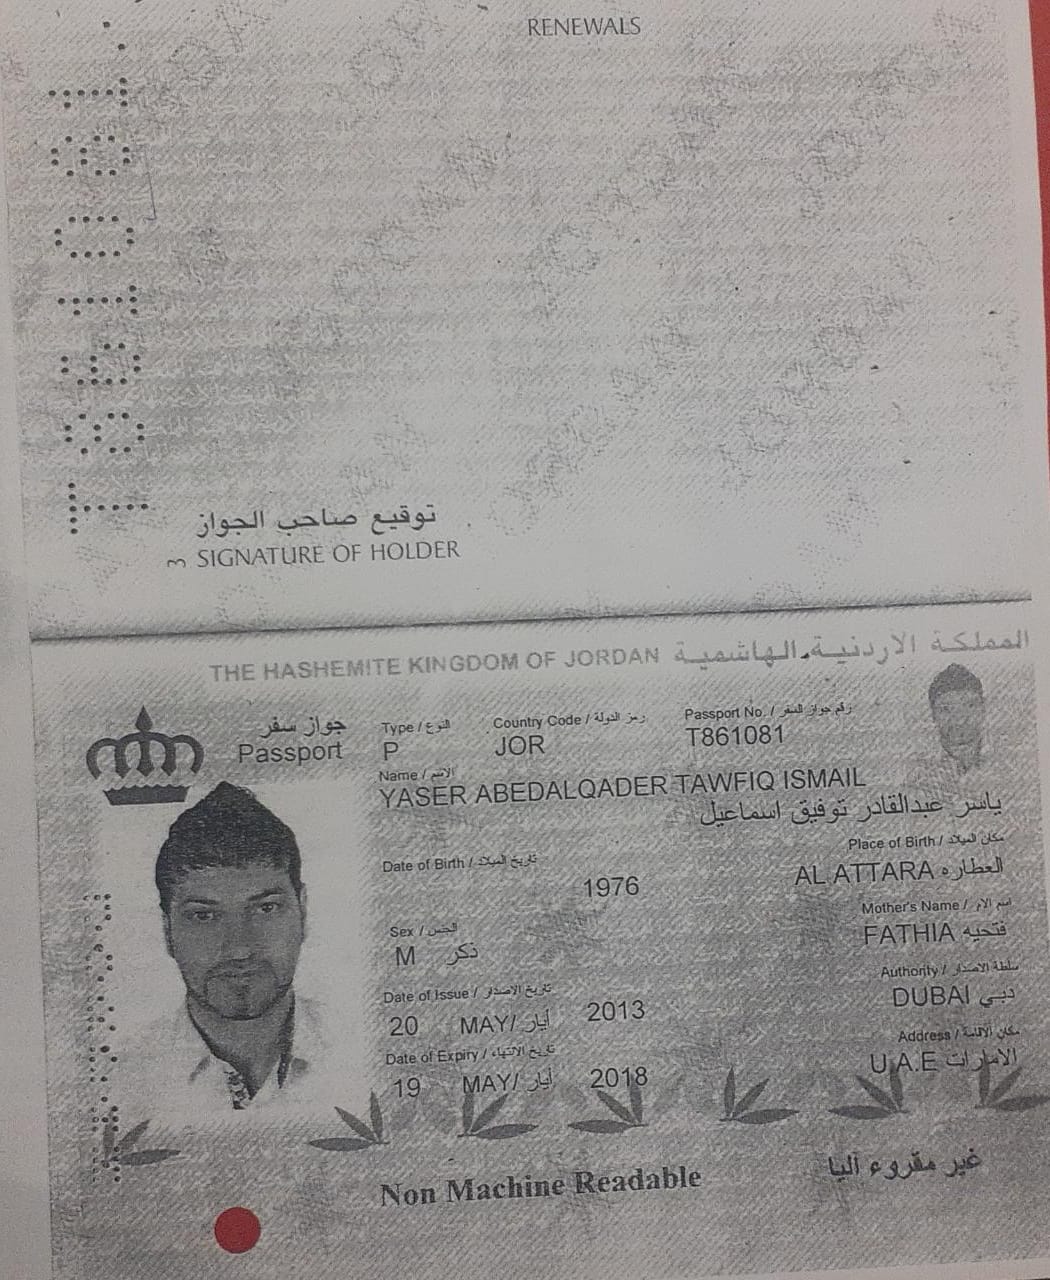 RENEWALS
T861081
توقيع صاحب الجواز
3 SIGNATURE OF HOLDER
THE HASHEMITE KINGDOM OF JORDAN المملكة الاردنية الهاشمية
جواز سفر
Passport
Type / النوع
P
Country Code / رمز الدولة
JOR
Passport No. / رقم جواز السفر
T861081
Name / الاسم
YASER ABEDALQADER TAWFIQ ISMAIL
ياسر عبدالقادر توفيق اسماعيل
Date of Birth / تاريخ الميلاد
1976
Place of Birth / مكان الميلاد
AL ATTARA العطاره
Sex / الجنس
M ذكر
Mother's Name / اسم الام
FATHIA فتحيه
Date of Issue / تاريخ الاصدار
20 MAY/ أيار 2013
Authority / سلطة الاصدار
DUBAI دبي
Date of Expiry / تاريخ الانتهاء
19 MAY/ أيار 2018
Address / مكان الاقامة
U.A.E الامارات
Non Machine Readable
غير مقروء آليا